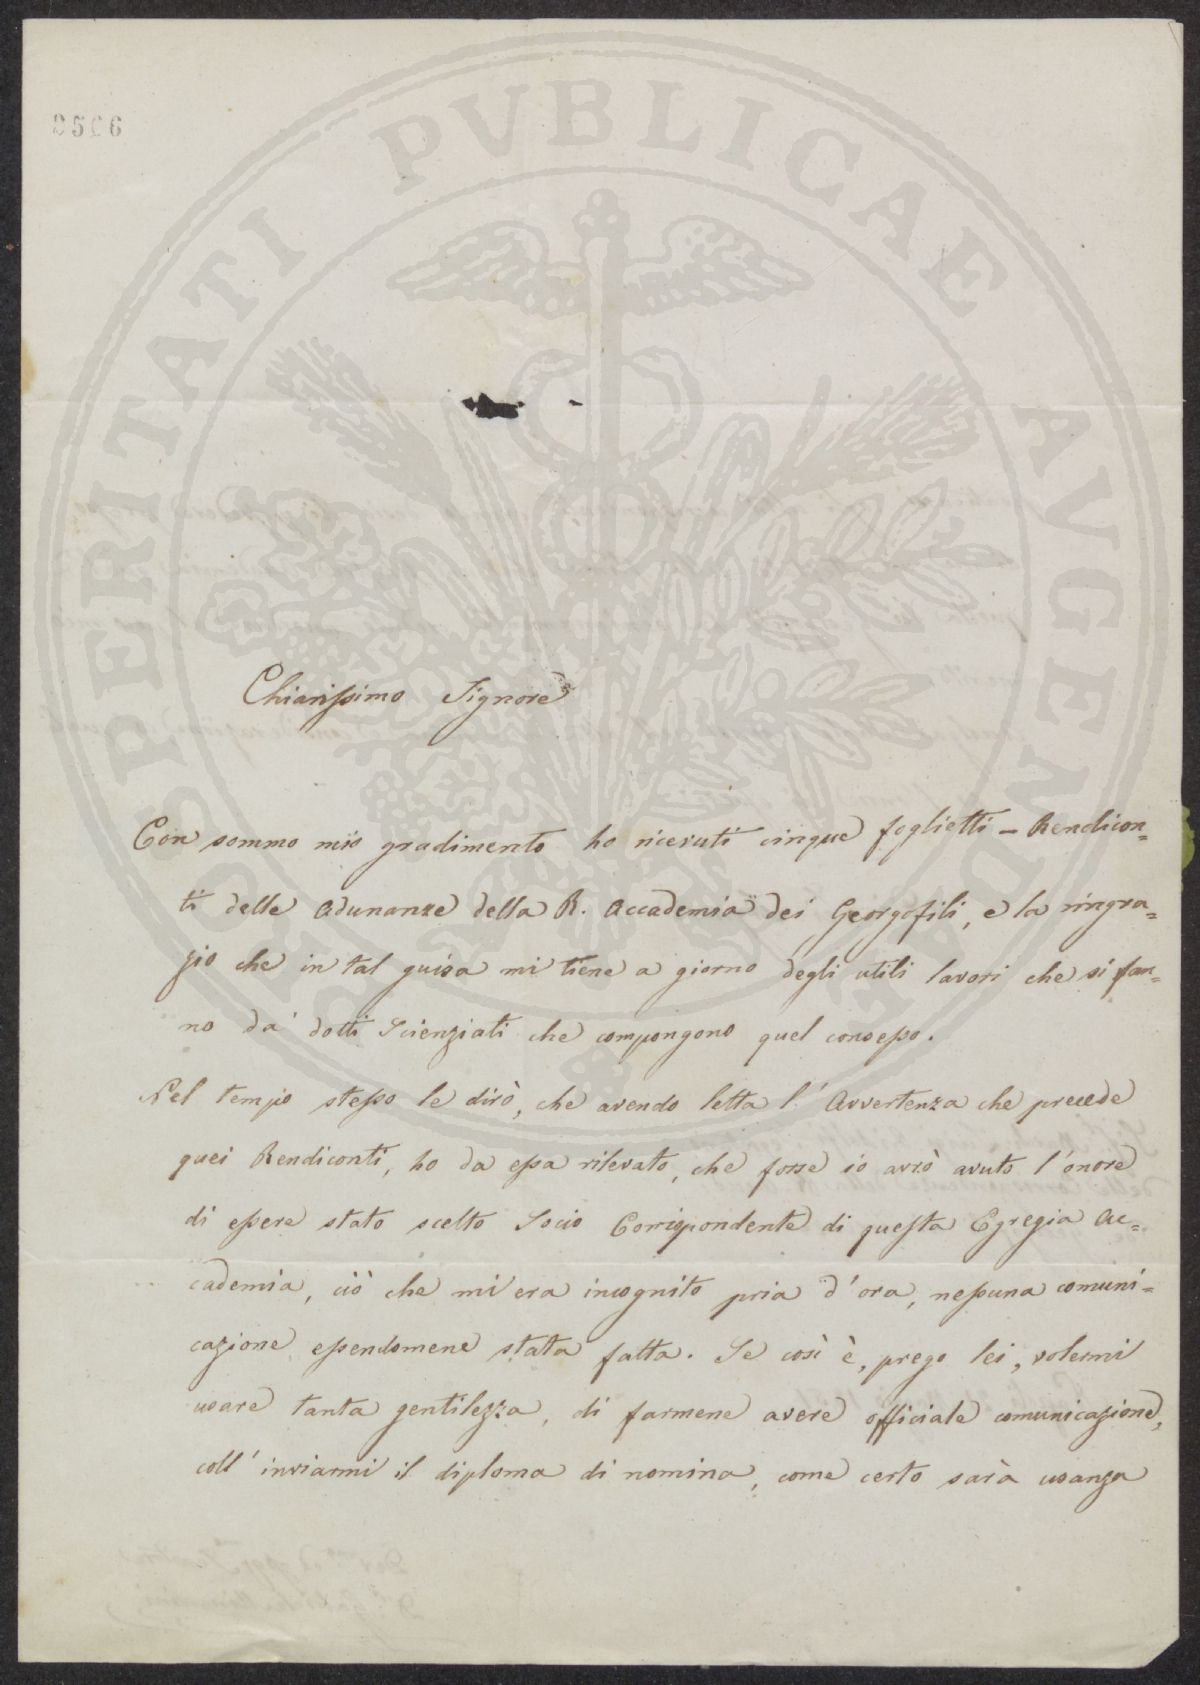 PROSPERITATI PVBLICAE AVGENDAE
Chiarissimo Signore
Con sommo mio gradimento ho ricevuti cinque foglietti – Rendicon=
ti delle Adunanze della R. Accademia dei Georgofili, e la ringra=
zio che in tal guisa mi tiene a giorno degli utili lavori che si fan=
no da' dotti Scienziati che compongono quel consesso.
Nel tempo stesso le dirò, che avendo letta l'Avvertenza che precede
quei Rendiconti, ho da essa rilevato, che forse io avrò avuto l'onore
di essere stato scelto Socio Corrispondente di questa Egregia Ac=
cademia, ciò che mi era incognito pria d'ora, nessuna comuni=
cazione essendomene stata fatta. Se così è, prego lei, volermi
usare tanta gentilezza, di farmene avere officiale comunicazione,
coll'inviarmi il diploma di nomina, come certo sarà usanza